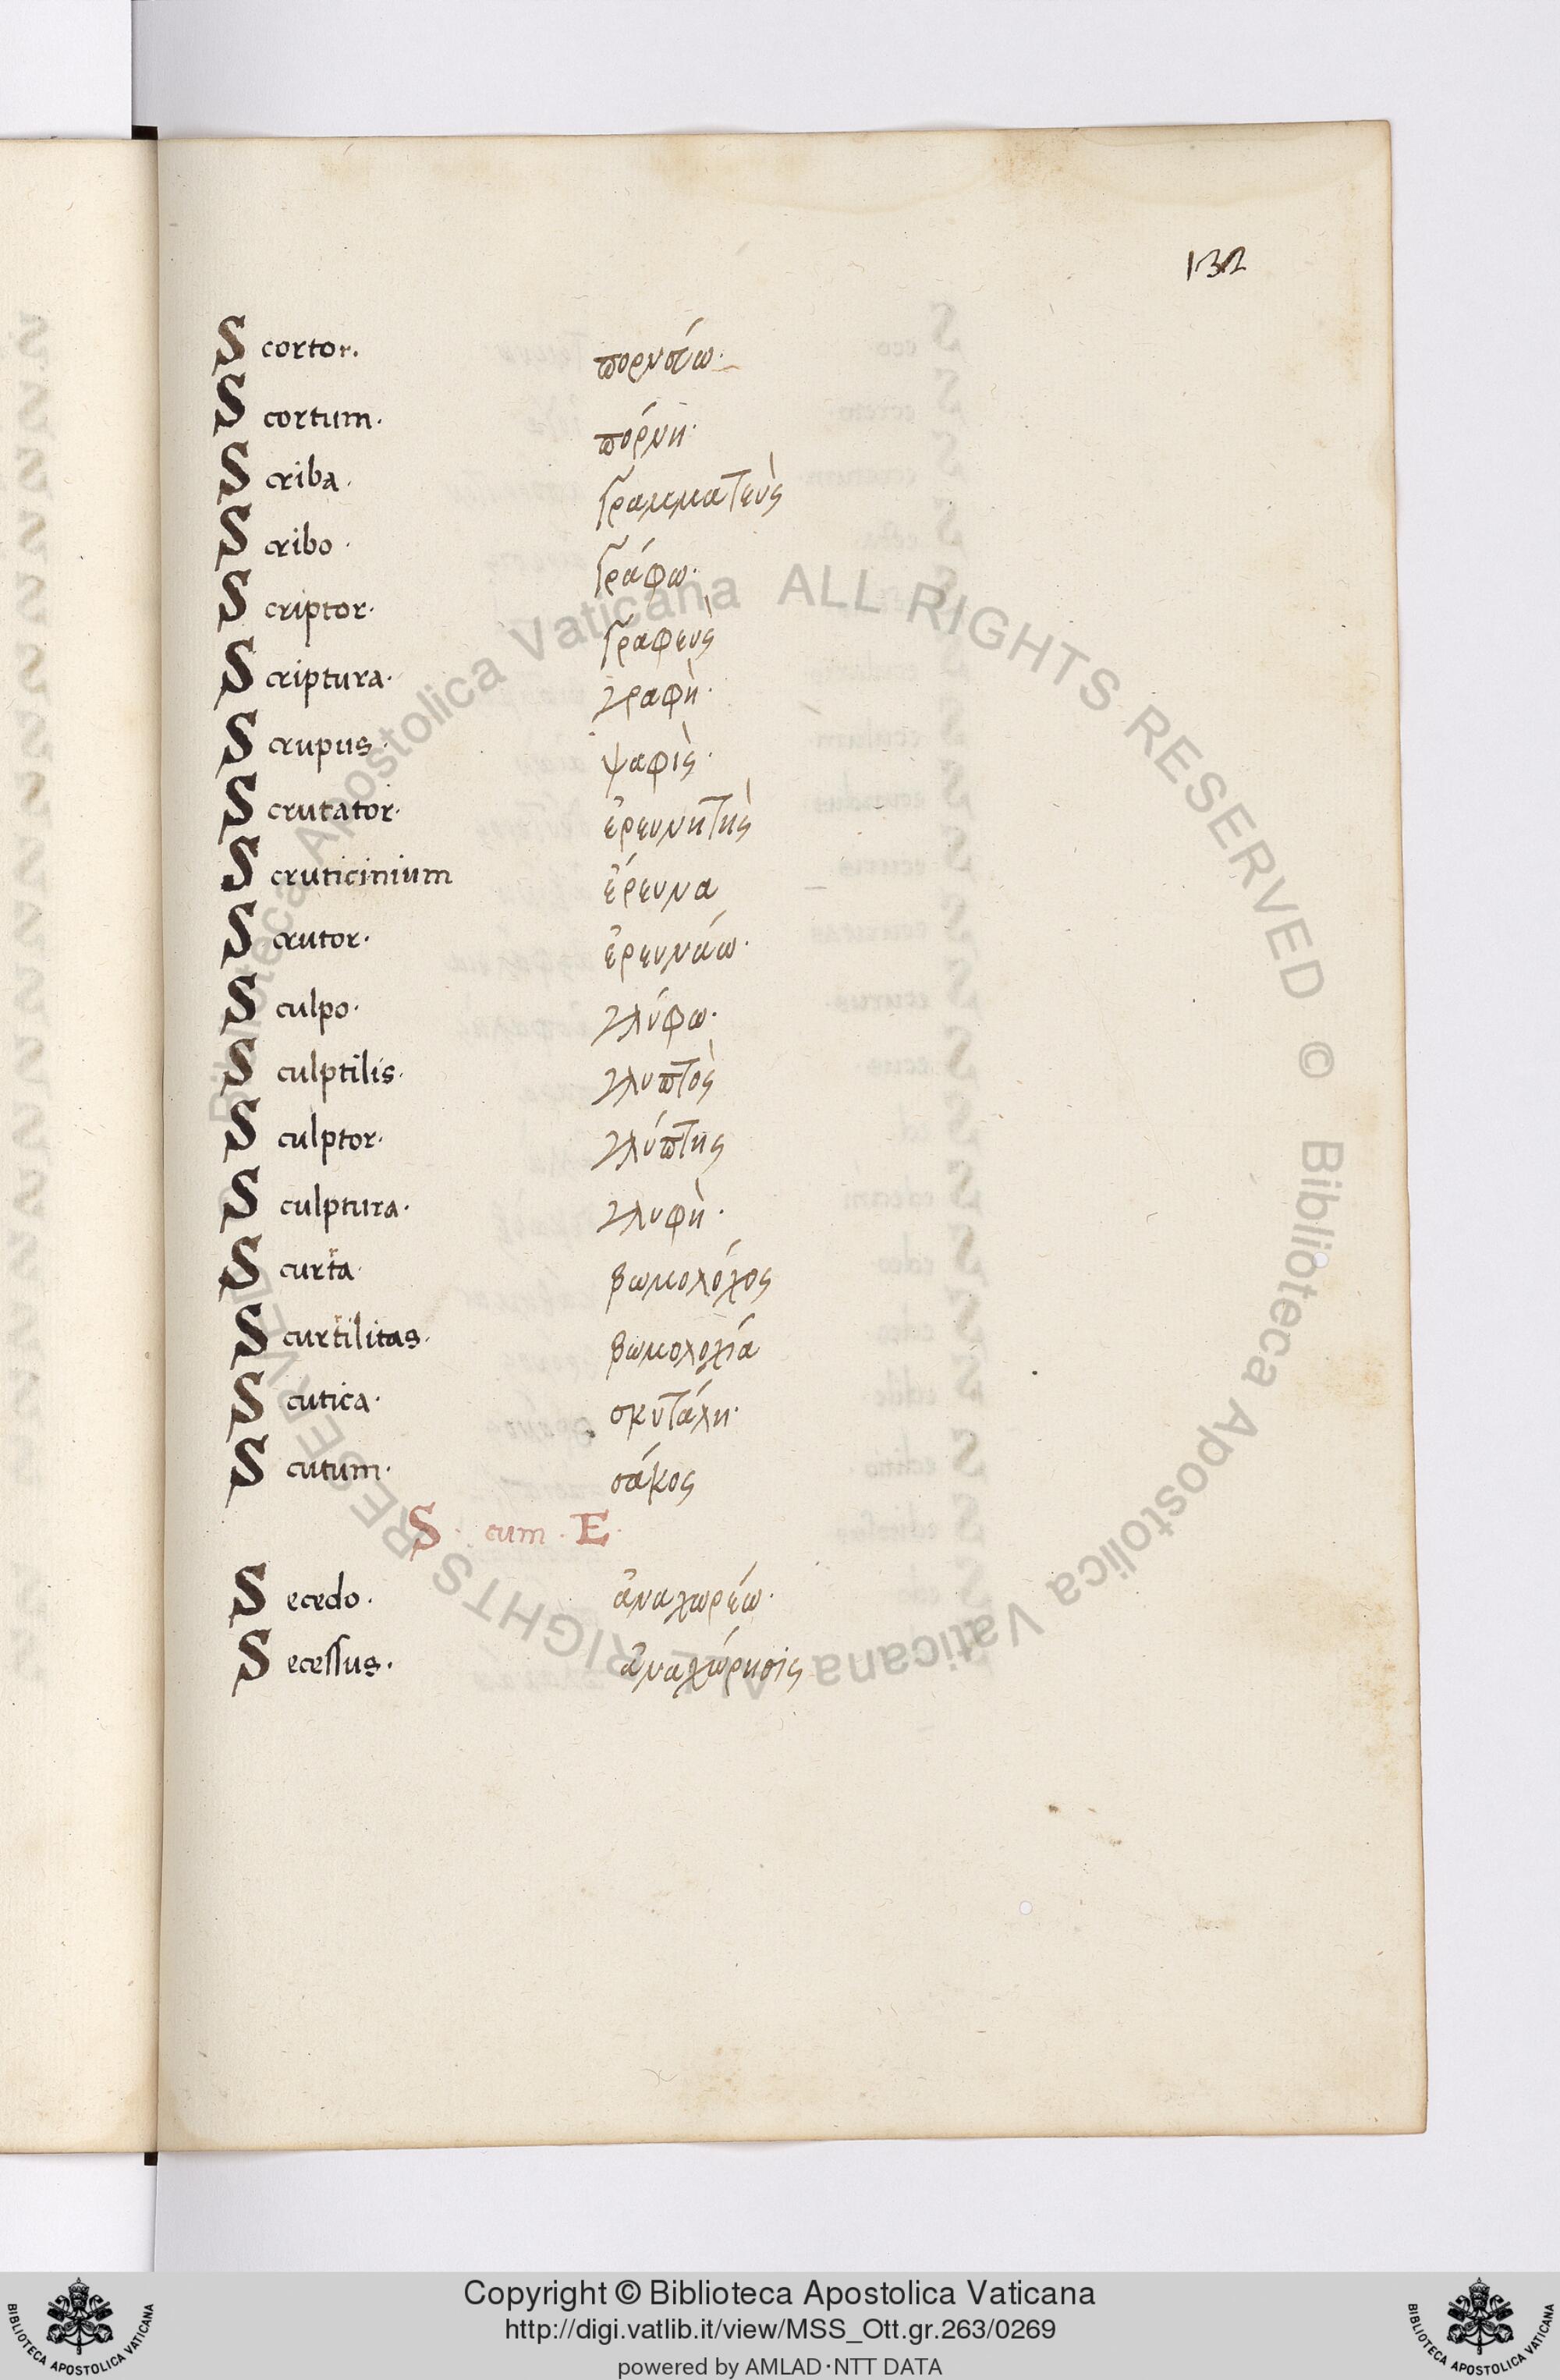 132
Scortor. πορνεύω·
Scortum· πόρνη·
Scriba· γραμματεὺς
Scribo· γράφω·
Scriptor· γραφεὺς
Scriptura· γραφὴ·
Scrupus· ψαφὶς·
Scrutator· ἐρευνητὴς
Scruticinium ἔρευνα
Scrutor· ἐρευνάω·
Sculpo· γλύφω·
Sculptilis· γλυπτὸς
Sculptor· γλύπτης
Sculptura· γλυφὴ·
Scurra· βωμολόχος
Scurrilitas· βωμολοχία
Scutica· σκυτάλη·
Scutum· σάκος
S· cum · E·
Secedo· ἀναχωρέω·
Secessus· ἀναχώρησις
Biblioteca Apostolica Vaticana ALL RIGHTS RESERVED © Biblioteca Apostolica Vaticana ALL RIGHTS RESERVED ©
Copyright © Biblioteca Apostolica Vaticana
http://digi.vatlib.it/view/MSS_Ott.gr.263/0269
powered by AMLAD·NTT DATA
BIBLIOTECA APOSTOLICA VATICANA
BIBLIOTECA APOSTOLICA VATICANA